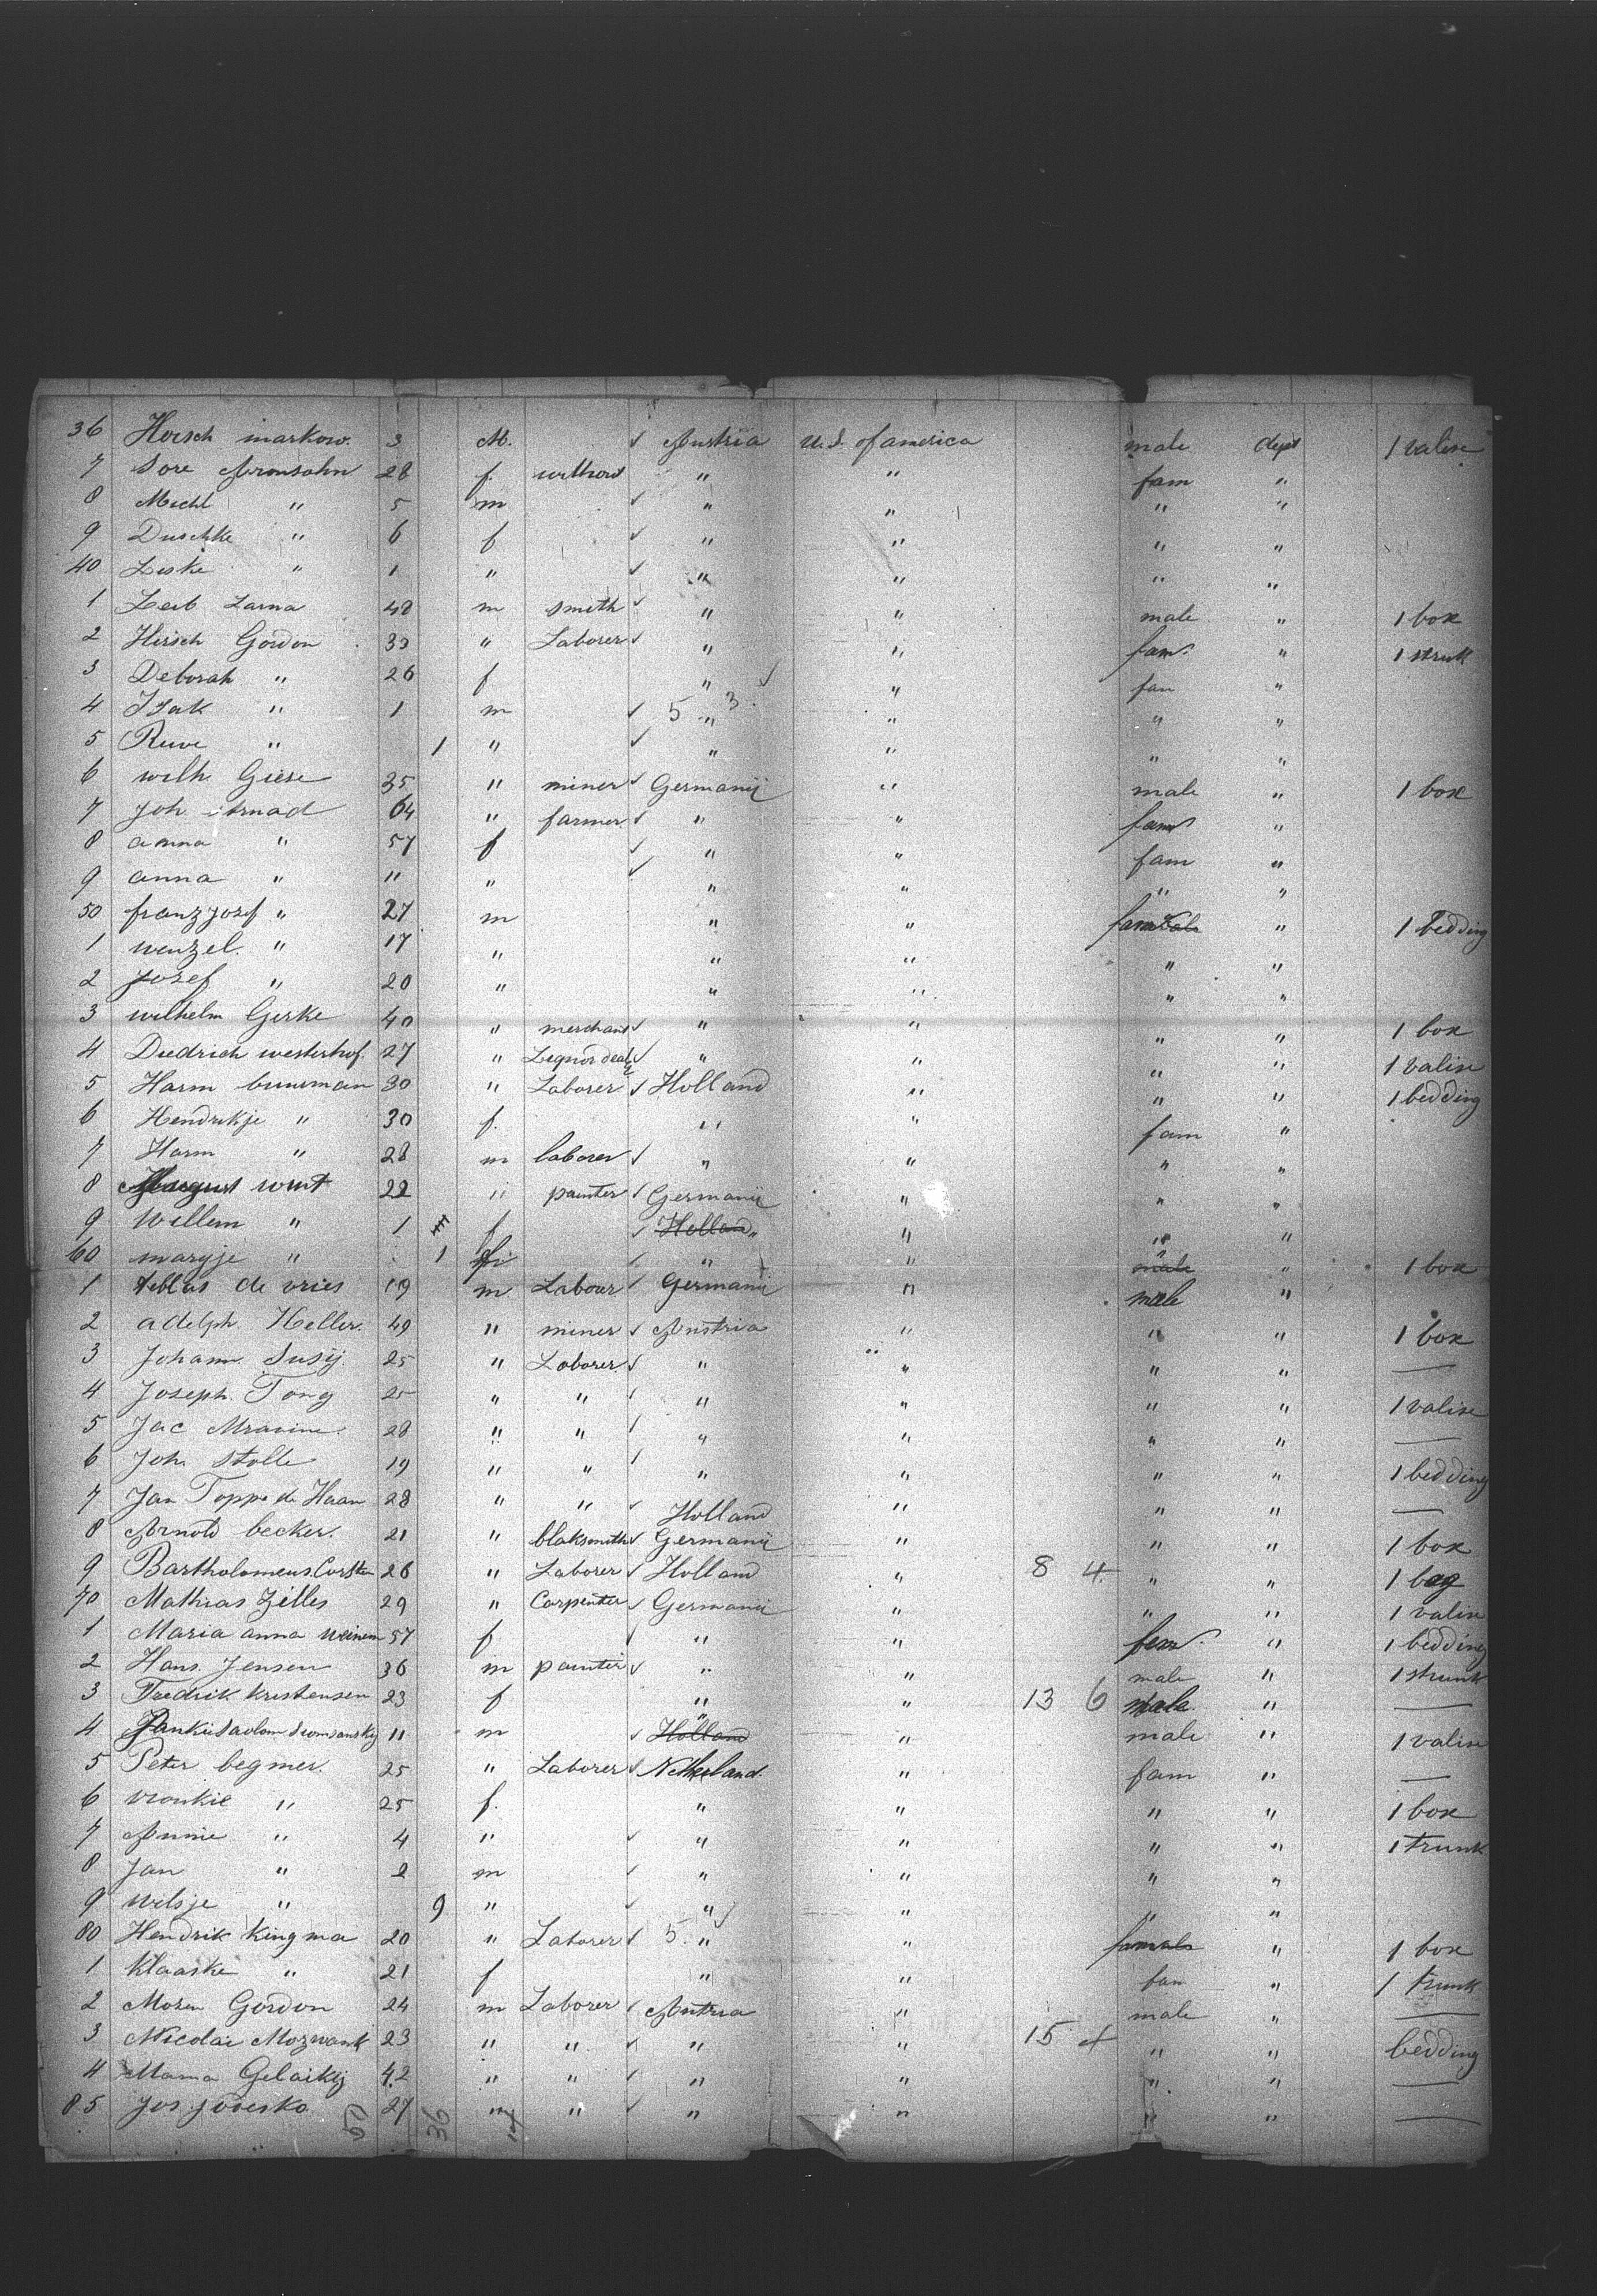 36 Hersch markow. 3 M. ✓ Austria U.S. of america male dept 1 valise
7 Sore Aronsohn 28 f. without " " fam "
8 Michl " 5 m ✓ " " " "
9 Duschke " 6 f ✓ " " " "
40 Leske " 1 " ✓ " " " "
1 Leib Larna 48 m smith ✓ " " male " 1 box
2 Hirsch Gordon 33 " Laborer ✓ " " fam. " 1 strunk
3 Deborah " 26 f " ✓ " fam "
4 Isak " 1 m ✓ 5 " 3 " " "
5 Ruve " 1 " ✓ " " " "
6 wilh. Giese 35 " miner ✓ Germanÿ " male " 1 box
7 Joh. 64 " farmer ✓ " " fam "
8 anna " 57 f ✓ " " fam "
9 anna " " " ✓ " " " "
50 franz josef " 27 m " " fam " 1 bedding
1 wenzel. " 17 " " " " "
2 Jozef " 20 " " " " "
3 wilhelm Gerke 40 " merchant ✓ " " " " 1 box
4 Diedrich westerhof. 27 " Liquor dealer ✓ " " " " 1 valise
5 Harm buurman 30 " Laborer ✓ Holland " " " 1 bedding
6 Hendrikje " 30 f. " " fam "
7 Harm " 28 m laborer ✓ " " " "
8 August wint 22 " painter ✓ Germanÿ " " "
9 Willem " 1 f ✓ Holland " " " "
60 maryje " 1 ✓ " " male " 1 box
1 de vries 19 m Labour ✓ Germanÿ " male "
2 adelph. Heller. 49 " miner ✓ Austria " " " 1 box
3 Johann Susij. 25 " Laborer ✓ " " " " —
4 Joseph. Tong 25 " " ✓ " " " " 1 valise
5 Jac Mravine. 28 " " ✓ " " " " —
6 Joh. Stolle 19 " " ✓ " " " " 1 bedding
7 Jan Toppe de Haan 28 " " ✓ Holland " " " —
8 Arnold becker. 21 " blaksmith ✓ Germanÿ " " " 1 box
9 Bartholomeus Corsten 26 " Laborer ✓ Holland " 8 4 " " 1 bag
70 Mathias Zilles 29 " Carpenter ✓ Germanÿ " " " 1 valise
1 Maria anna 57 f ✓ " " fem. " 1 bedding
2 Hans Jensen 36 m painter ✓ " " male " 1 strunk
3 Fredrik kristensen 23 f " " 13 6 male " —
4 11 m ✓ Holland " male " 1 valise
5 Peter begmer. 25 " Laborer ✓ Netherland. " fam " —
6 vronkie " 25 f. " " " " 1 box
7 Annie " 4 " ✓ " " " " 1 trunk
8 Jan " 2 m ✓ " " " "
9 wilsje " 9 " ✓ " " " "
80 Hendrik kingma 20 " Laborer ✓ 5. " " " 1 box
1 klaaske " 21 f " " fam " 1 trunk
2 Mozen Gordon 24 m Laborer ✓ Austria " male " —
3 Nicolai Mozwank 23 " " ✓ " " 15 4 " " bedding
4 Mama Gelaikij 42 " " ✓ " " " " —
85 Jos. jodesko. 27 " " ✓ " " " " —
36